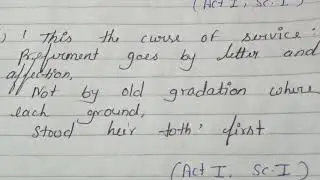 (Act I, Sc. I)
) ' This the curse of service :
Preferment goes by letter and
affection,
Not by old gradation where
each ground,
Stood heir toth' first
(Act I, Sc. I)